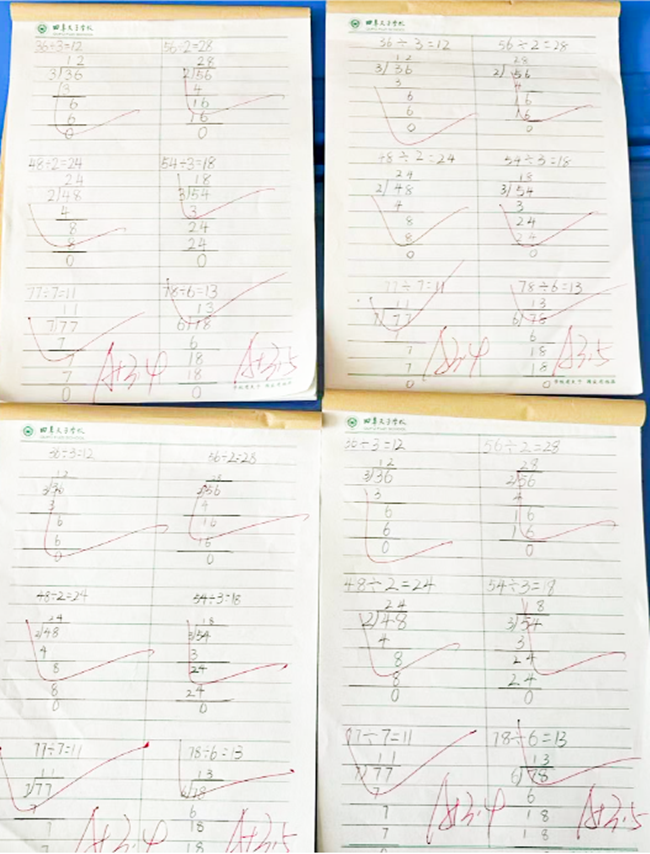 36÷3=12 56÷2=28
12 28
3/36 2/56
3 4
6 16
6 16
0 0
48÷2=24 54÷3=18
24 18
2/48 3/54
4 3
8 24
8 24
0 0
77÷7=11 78÷6=13
11 13
7/77 6/78
7 6
7 18
7 18
0 0
A+3.4 A+3.5
36÷3=12 56÷2=28
12 28
3/36 2/56
3 4
6 16
6 16
0 0
48÷2=24 54÷3=18
24 18
2/48 3/54
4 3
8 24
8 24
0 0
77÷7=11 78÷6=13
11 13
7/77 6/78
7 6
7 18
7 18
0 0
A3.4 A3.5
36÷3=12 56÷2=28
12 28
3/36 2/56
3 4
6 16
6 16
0 0
48÷2=24 54÷3=18
24 18
2/48 3/54
4 3
8 24
8 24
0 0
77÷7=11 78÷6=13
11 13
7/77 6/78
7 6
7 18
A+3.4 A+3.5
36÷3=12 56÷2=28
12 28
3/36 2/56
3 4
6 16
6 16
0 0
48÷2=24 54÷3=18
24 18
2/48 3/54
4 3
8 24
8 24
0 0
77÷7=11 78÷6=13
11 13
7/77 6/78
7 6
7 18
7 18
A+3.4 A+3.5